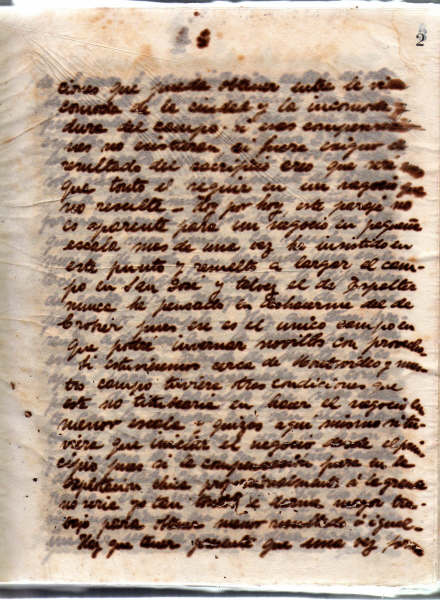 2
ciones que pueda obtener entre la vida
comoda de la ciudad y la incomoda y
dura del campo. si esas compensacio
nes no existieran ó fuera exiguo el
resultado del sacrificio creo que seria
que tonto el seguir en un negocio que
no resulte — Hoy por hoy este paraje no
es aparente para un negocio en pequeña
escala mas de una vez he insistido en
este punto y resuelto a largar el cam-
po en San José y talvez el de Espeltra
nunca he pensado en deshacerme del de
pues ese es el unico campo en
que podré invernar novillos con provecho
Si estuviesemos cerca de Montevideo y nues
tro campo tuviera otras condiciones que
este no titubearia en hacer el negocio en
menor escala y quizás aqui mismo si tu-
viera que iniciar el negocio desde el prin
cipio pues si la compensación fuera en la
explotacion chica proporcionalmente á la grande
no seria yo tan tonto de tomar mayor tra-
bajo para obtener menor resultado ó igual—
Hay que tener presente que una vez